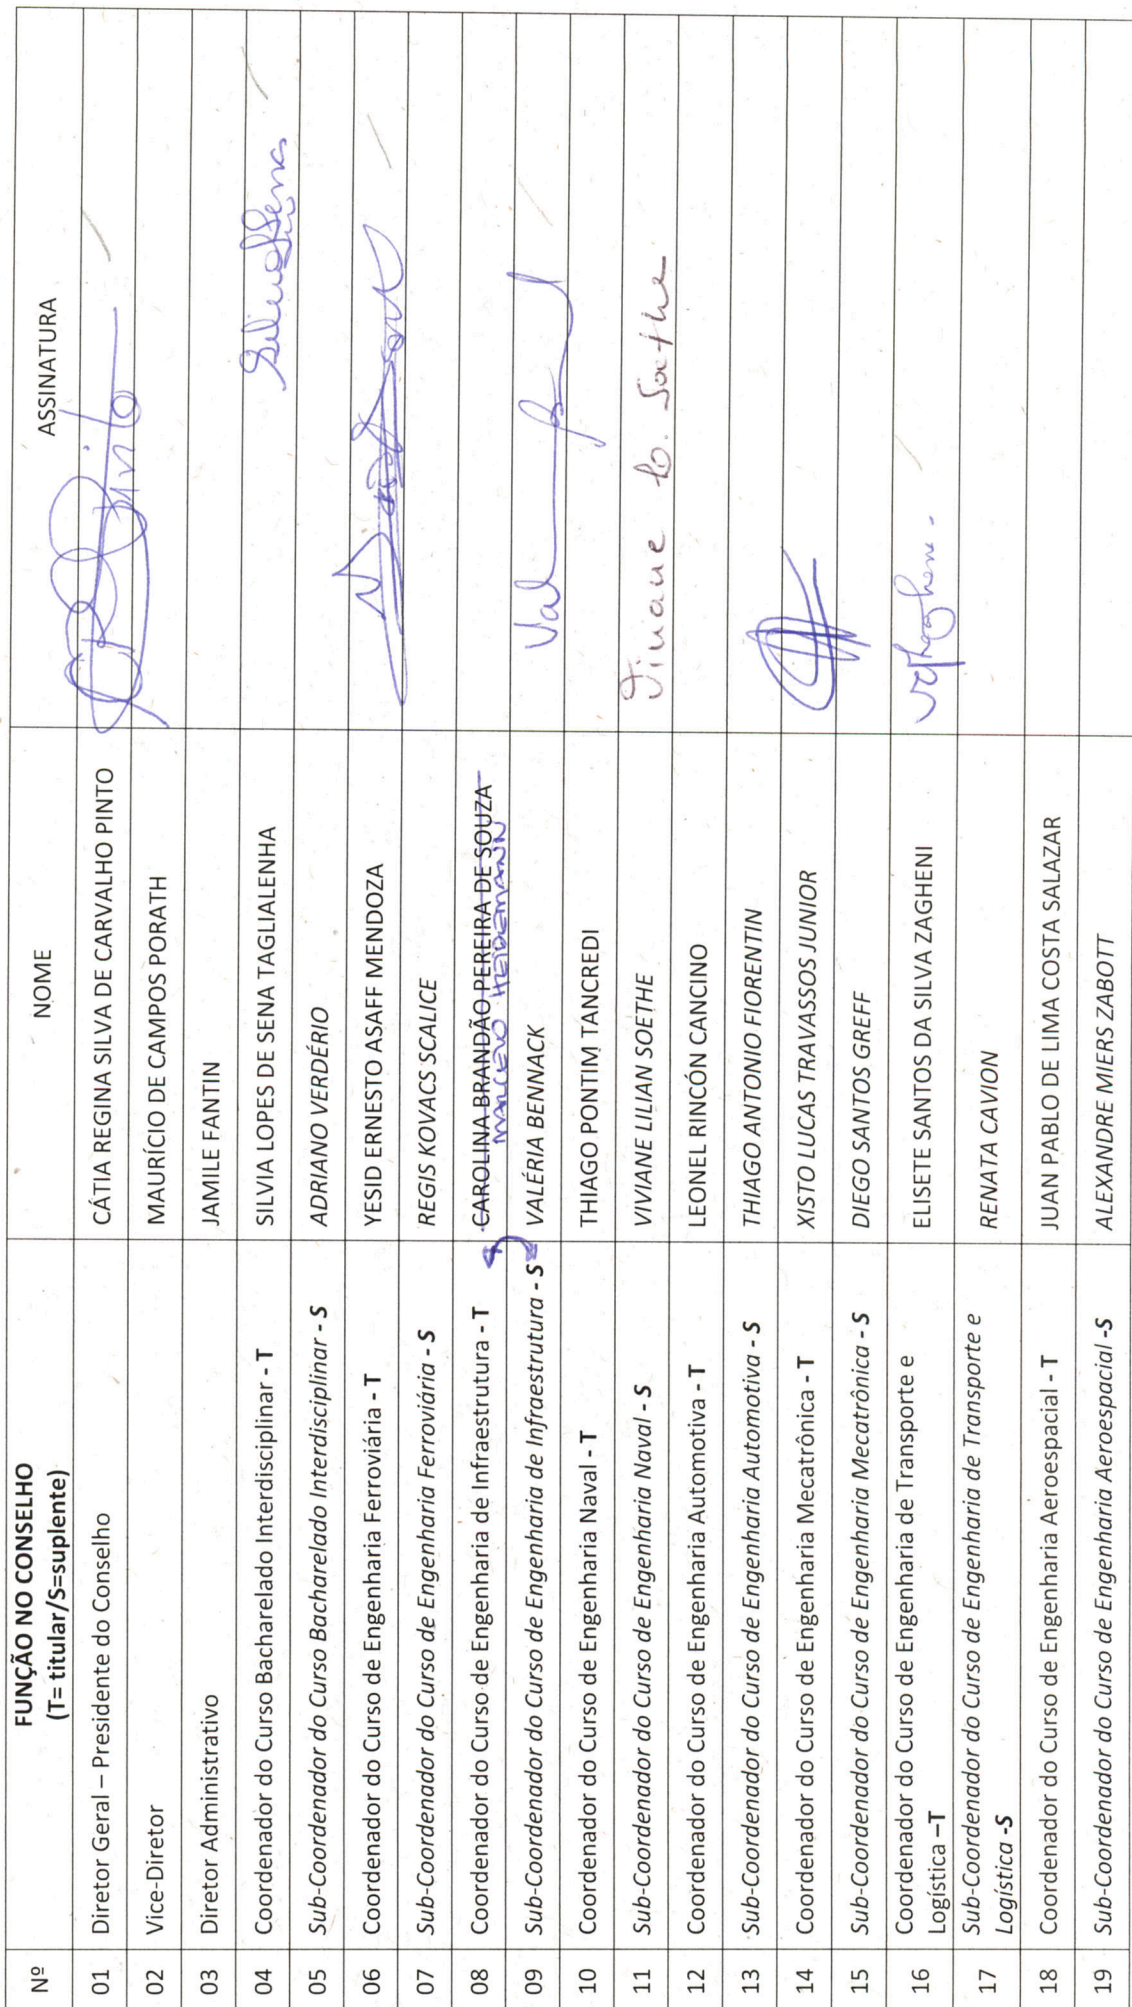 Nº FUNÇÃO NO CONSELHO NOME ASSINATURA
(T= titular/S=suplente)
01 Diretor Geral – Presidente do Conselho CÁTIA REGINA SILVA DE CARVALHO PINTO Pinto
02 Vice-Diretor MAURÍCIO DE CAMPOS PORATH
03 Diretor Administrativo JAMILE FANTIN
04 Coordenador do Curso Bacharelado Interdisciplinar - T SILVIA LOPES DE SENA TAGLIALENHA
05 Sub-Coordenador do Curso Bacharelado Interdisciplinar - S ADRIANO VERDÉRIO
06 Coordenador do Curso de Engenharia Ferroviária - T YESID ERNESTO ASAFF MENDOZA
07 Sub-Coordenador do Curso de Engenharia Ferroviária - S REGIS KOVACS SCALICE
08 Coordenador do Curso de Engenharia de Infraestrutura - T CAROLINA BRANDÃO PEREIRA DE SOUZA
MARCELO HEIDEMANN
09 Sub-Coordenador do Curso de Engenharia de Infraestrutura - S VALÉRIA BENNACK Val
10 Coordenador do Curso de Engenharia Naval - T THIAGO PONTIM TANCREDI
11 Sub-Coordenador do Curso de Engenharia Naval - S VIVIANE LILIAN SOETHE Viviane L. Soethe
12 Coordenador do Curso de Engenharia Automotiva - T LEONEL RINCÓN CANCINO
13 Sub-Coordenador do Curso de Engenharia Automotiva - S THIAGO ANTONIO FIORENTIN
14 Coordenador do Curso de Engenharia Mecatrônica - T XISTO LUCAS TRAVASSOS JUNIOR
15 Sub-Coordenador do Curso de Engenharia Mecatrônica - S DIEGO SANTOS GREFF
16 Coordenador do Curso de Engenharia de Transporte e ELISETE SANTOS DA SILVA ZAGHENI
Logística –T
17 Sub-Coordenador do Curso de Engenharia de Transporte e RENATA CAVION
Logística -S
18 Coordenador do Curso de Engenharia Aeroespacial - T JUAN PABLO DE LIMA COSTA SALAZAR
19 Sub-Coordenador do Curso de Engenharia Aeroespacial -S ALEXANDRE MIERS ZABOTT